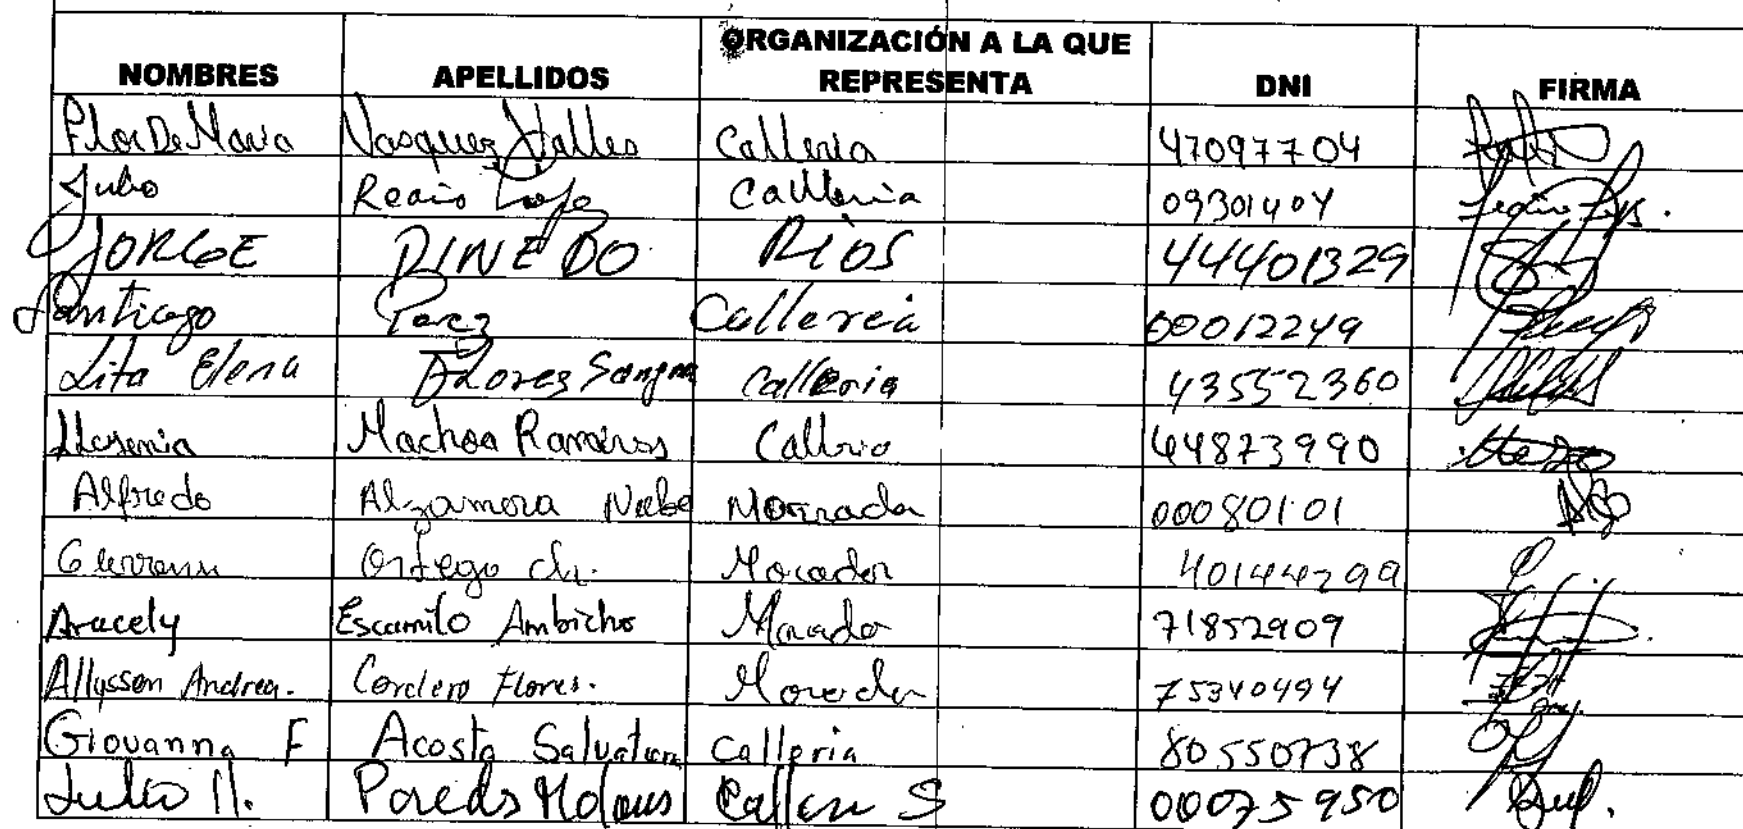 NOMBRES APELLIDOS ORGANIZACIÓN A LA QUE REPRESENTA DNI FIRMA
Flor De Maria Vasquez Valles Calleria 47097704
Julio Reaño Calleria 09301404
JORGE PINEDO RÍOS 44401329
Santiago Paez Calleria 00012249
Lita Elena Flores Sangma Calleria 43552360
Llesenia Machoa Ramires Calleria 44873990
Alfredo Alzamora Morador 00080101
Ortega ch. Morador 401444299
Aracely Escamilo Ambicho Morador 71852909
Allysson Andrea. Cordero Flores. Morador 75340494
Giovanna F Acosta Salvatierra Calleria 80550738
Julio M. Paredes 00075950